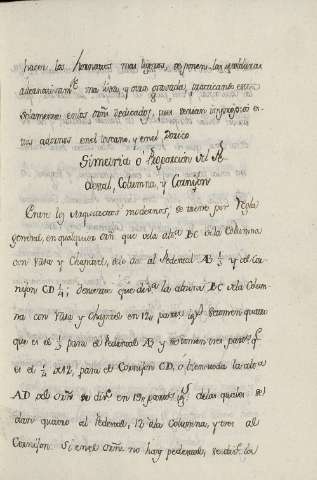 hacen los Ornatos mas ligeros, se ponen las molduras
alternativamte. una lisa, y otra gravada, practicando esto
solamente en los ordns. delicados, pues serian impropios es-
tos adornos en el toscano, y en el Dorico
Simetria ó Proporcion del Pe-
destal, Columna, y Cornijon
Entre los Arquitectos modernos, se tiene por Regla
general, en qualquier ordn. que de la altura BC de la Columna
con Vasa y Chapitel, se de al Pedestal AB ⅓ y al Cor-
nijon CD ¼; de suerte que divda. la altura BC de la Colum-
na con Vasa y Chapitel en 12 partes igs. se tomen quatro
que es el ⅓ para el Pedestal AB y se tomen tres partes q.
es el ¼ de 12, para el Cornijon CD, ó bien toda la altura
AD del ordn. se divda. en 19 partes igs. de las quales se
dan quatro al Pedestal, 12 á la Columna, y tres al
Cornijon. Si en el ordn. no hay pedestal, se divda. la